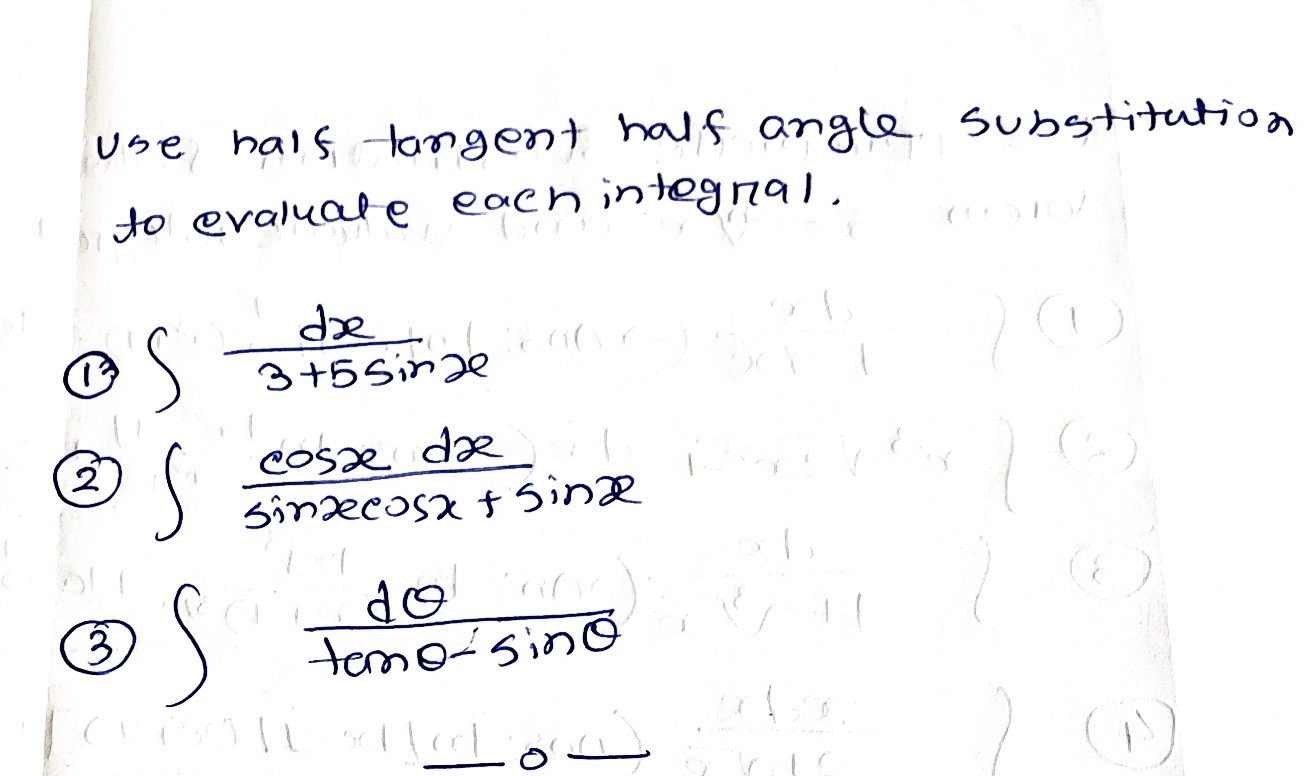 Use half tangent half angle substitution
to evaluate each integral.
① ∫ dx / (3+5sinx)
② ∫ cosx dx / (sinxcosx + sinx)
③ ∫ dθ / (tanθ - sinθ)
— o —